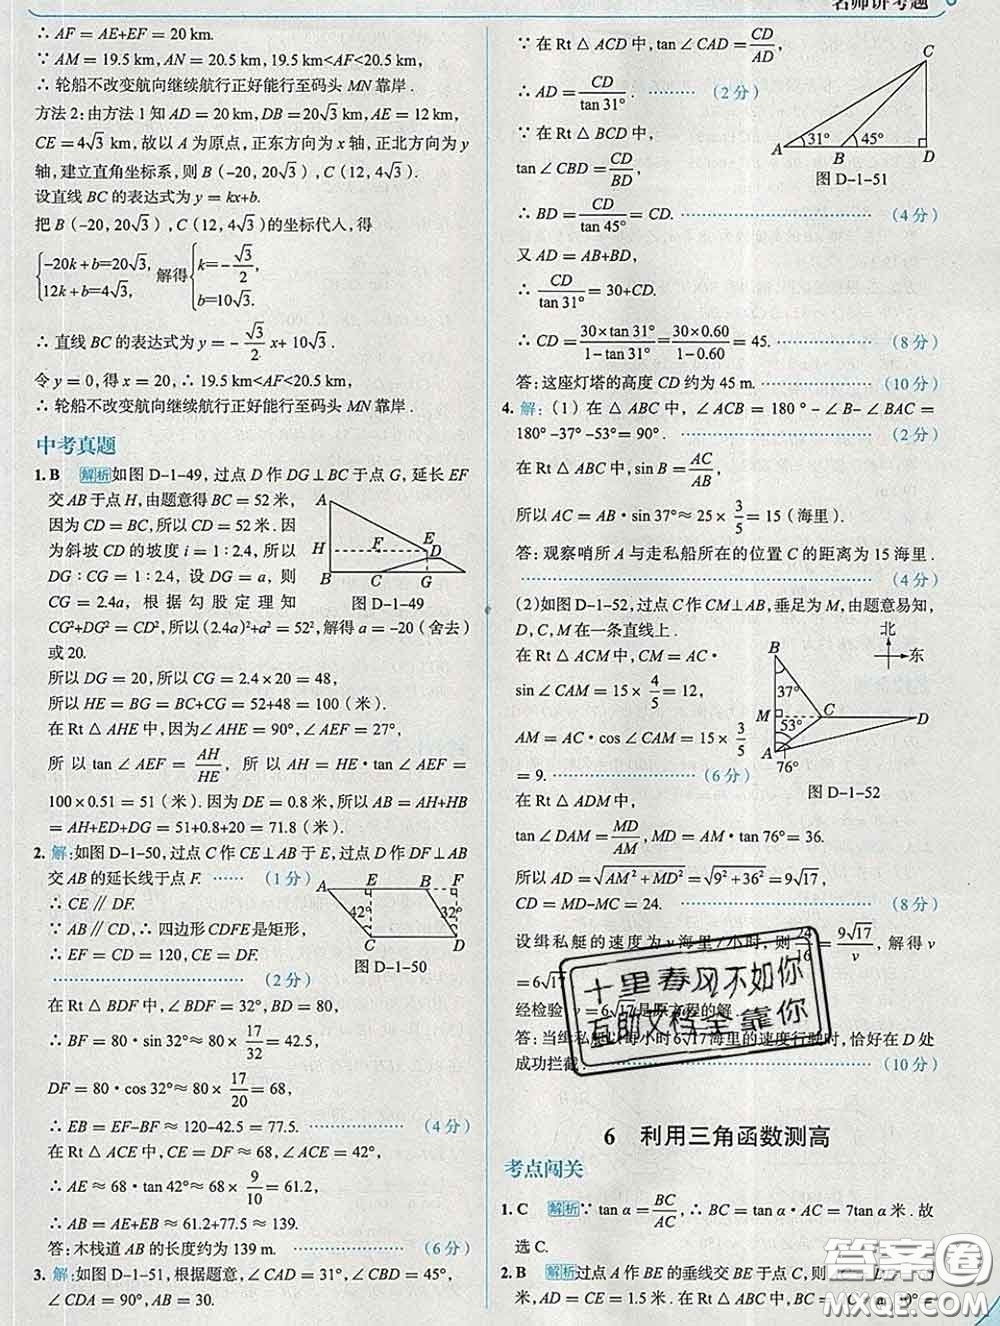 名师讲考题
∴ AF = AE+EF = 20 km.
∵ AM = 19.5 km, AN = 20.5 km, 19.5 km<AF<20.5 km.
∴ 轮船不改变航向继续航行正好能行至码头 MN 靠岸.
方法 2: 由方法 1 知 AD = 20 km, DB = 20√3 km, AE = 12 km,
CE = 4√3 km, 故以 A 为原点, 正东方向为 x 轴, 正北方向为 y
轴, 建立直角坐标系, 则 B (-20, 20√3), C (12, 4√3).
设直线 BC 的表达式为 y = kx+b.
把 B (-20, 20√3), C (12, 4√3) 的坐标代人, 得
{-20k+b=20√3, 12k+b=4√3, 解得 {k=-√3/2, b=10√3.
∴ 直线 BC 的表达式为 y = -√3/2 x+10√3.
令 y = 0, 得 x = 20, ∴ 19.5 km<AF<20.5 km.
∴ 轮船不改变航向继续航行正好能行至码头 MN 靠岸.
中考真题
1. B 解析 如图 D-1-49, 过点 D 作 DG⊥BC 于点 G, 延长 EF
交 AB 于点 H, 由题意得 BC = 52 米,
因为 CD = BC, 所以 CD = 52 米. 因
为斜坡 CD 的坡度 i = 1∶2.4, 所以
DG∶CG = 1∶2.4, 设 DG = a, 则
CG = 2.4a, 根据勾股定理知
A H B F E D C G
图 D-1-49
CG²+DG² = CD², 所以 (2.4a)²+a² = 52², 解得 a = -20 (舍去)
或 20.
所以 DG = 20, 所以 CG = 2.4×20 = 48,
所以 HE = BG = BC+CG = 52+48 = 100 (米).
在 Rt△AHE 中, 因为∠AHE = 90°, ∠AEF = 27°,
所以 tan∠AEF = AH/HE, 所以 AH = HE·tan∠AEF =
100×0.51 = 51 (米). 因为 DE = 0.8 米, 所以 AB = AH+HB
= AH+ED+DG = 51+0.8+20 = 71.8 (米).
2. 解: 如图 D-1-50, 过点 C 作 CE⊥AB 于 E, 过点 D 作 DF⊥AB
交 AB 的延长线于点 F. …… (1 分)
∴ CE∥DF.
∵ AB∥CD, ∴ 四边形 CDFE 是矩形,
∴ EF = CD = 120, CE = DF.
…… (2 分)
A E B F 42° 32° C D
图 D-1-50
在 Rt△BDF 中, ∠BDF = 32°, BD = 80,
∴ BF = 80·sin 32°≈80×17/32 = 42.5,
DF = 80·cos 32°≈80×17/20 = 68,
∴ EB = EF-BF ≈ 120-42.5 = 77.5. …… (4 分)
在 Rt△ACE 中, CE = DF = 68, ∠ACE = 42°,
∴ AE ≈ 68·tan 42°≈68×9/10 = 61.2,
∴ AB = AE+EB ≈ 61.2+77.5 ≈ 139.
答: 木栈道 AB 的长度约为 139 m. …… (6 分)
3. 解: 如图 D-1-51, 根据题意, ∠CAD = 31°, ∠CBD = 45°,
∠CDA = 90°, AB = 30.
∵ 在 Rt△ACD 中, tan∠CAD = CD/AD,
∴ AD = CD/tan 31°. …… (2 分)
∵ 在 Rt△BCD 中,
tan∠CBD = CD/BD,
C A 31° B 45° D
图 D-1-51
∴ BD = CD/tan 45° = CD. …… (4 分)
又 AD = AB+BD,
∴ CD/tan 31° = 30+CD.
∴ CD = 30×tan 31°/1-tan 31° = 30×0.60/1-0.60 = 45. …… (8 分)
答: 这座灯塔的高度 CD 约为 45 m. …… (10 分)
4. 解: (1) 在△ABC 中, ∠ACB = 180°-∠B-∠BAC =
180°-37°-53°= 90°. …… (2 分)
在 Rt△ABC 中, sin B = AC/AB,
所以 AC = AB·sin 37°≈25×3/5 = 15 (海里).
答: 观察哨所 A 与走私船所在的位置 C 的距离为 15 海里.
…… (4 分)
(2) 如图 D-1-52, 过点 C 作 CM⊥AB, 垂足为 M, 由题意易知,
D, C, M 在一条直线上.
在 Rt△ACM 中, CM = AC·
sin∠CAM = 15×4/5 = 12,
AM = AC·cos∠CAM = 15×3/5
= 9. …… (6 分)
北 东
B 37° M C D 53° A 76°
图 D-1-52
在 Rt△ADM 中,
tan∠DAM = MD/AM, MD = AM·tan 76°= 36.
所以 AD = √(AM²+MD²) = √(9²+36²) = 9√17,
CD = MD-MC = 24. …… (8 分)
设缉私艇的速度为 v 海里/小时, 则 24/16 = 9√17/v, 解得 v
= 6√17.
经检验 v = 6√17 是原方程的解.
答: 当缉私艇以每小时 6√17 海里的速度行驶时, 恰好在 D 处
成功拦截. …… (10 分)
十里春风不如你
互助文档全靠你
6 利用三角函数测高
考点闯关
1. C 解析 ∵ tan α = BC/AC, ∴ BC = tan α·AC = 7tan α 米. 故
选 C.
2. B 解析 过点 A 作 BE 的垂线交 BE 于点 C, 则
米, AD = CE = 1.5 米. 在 Rt△A
答案圈
MXQE.COM